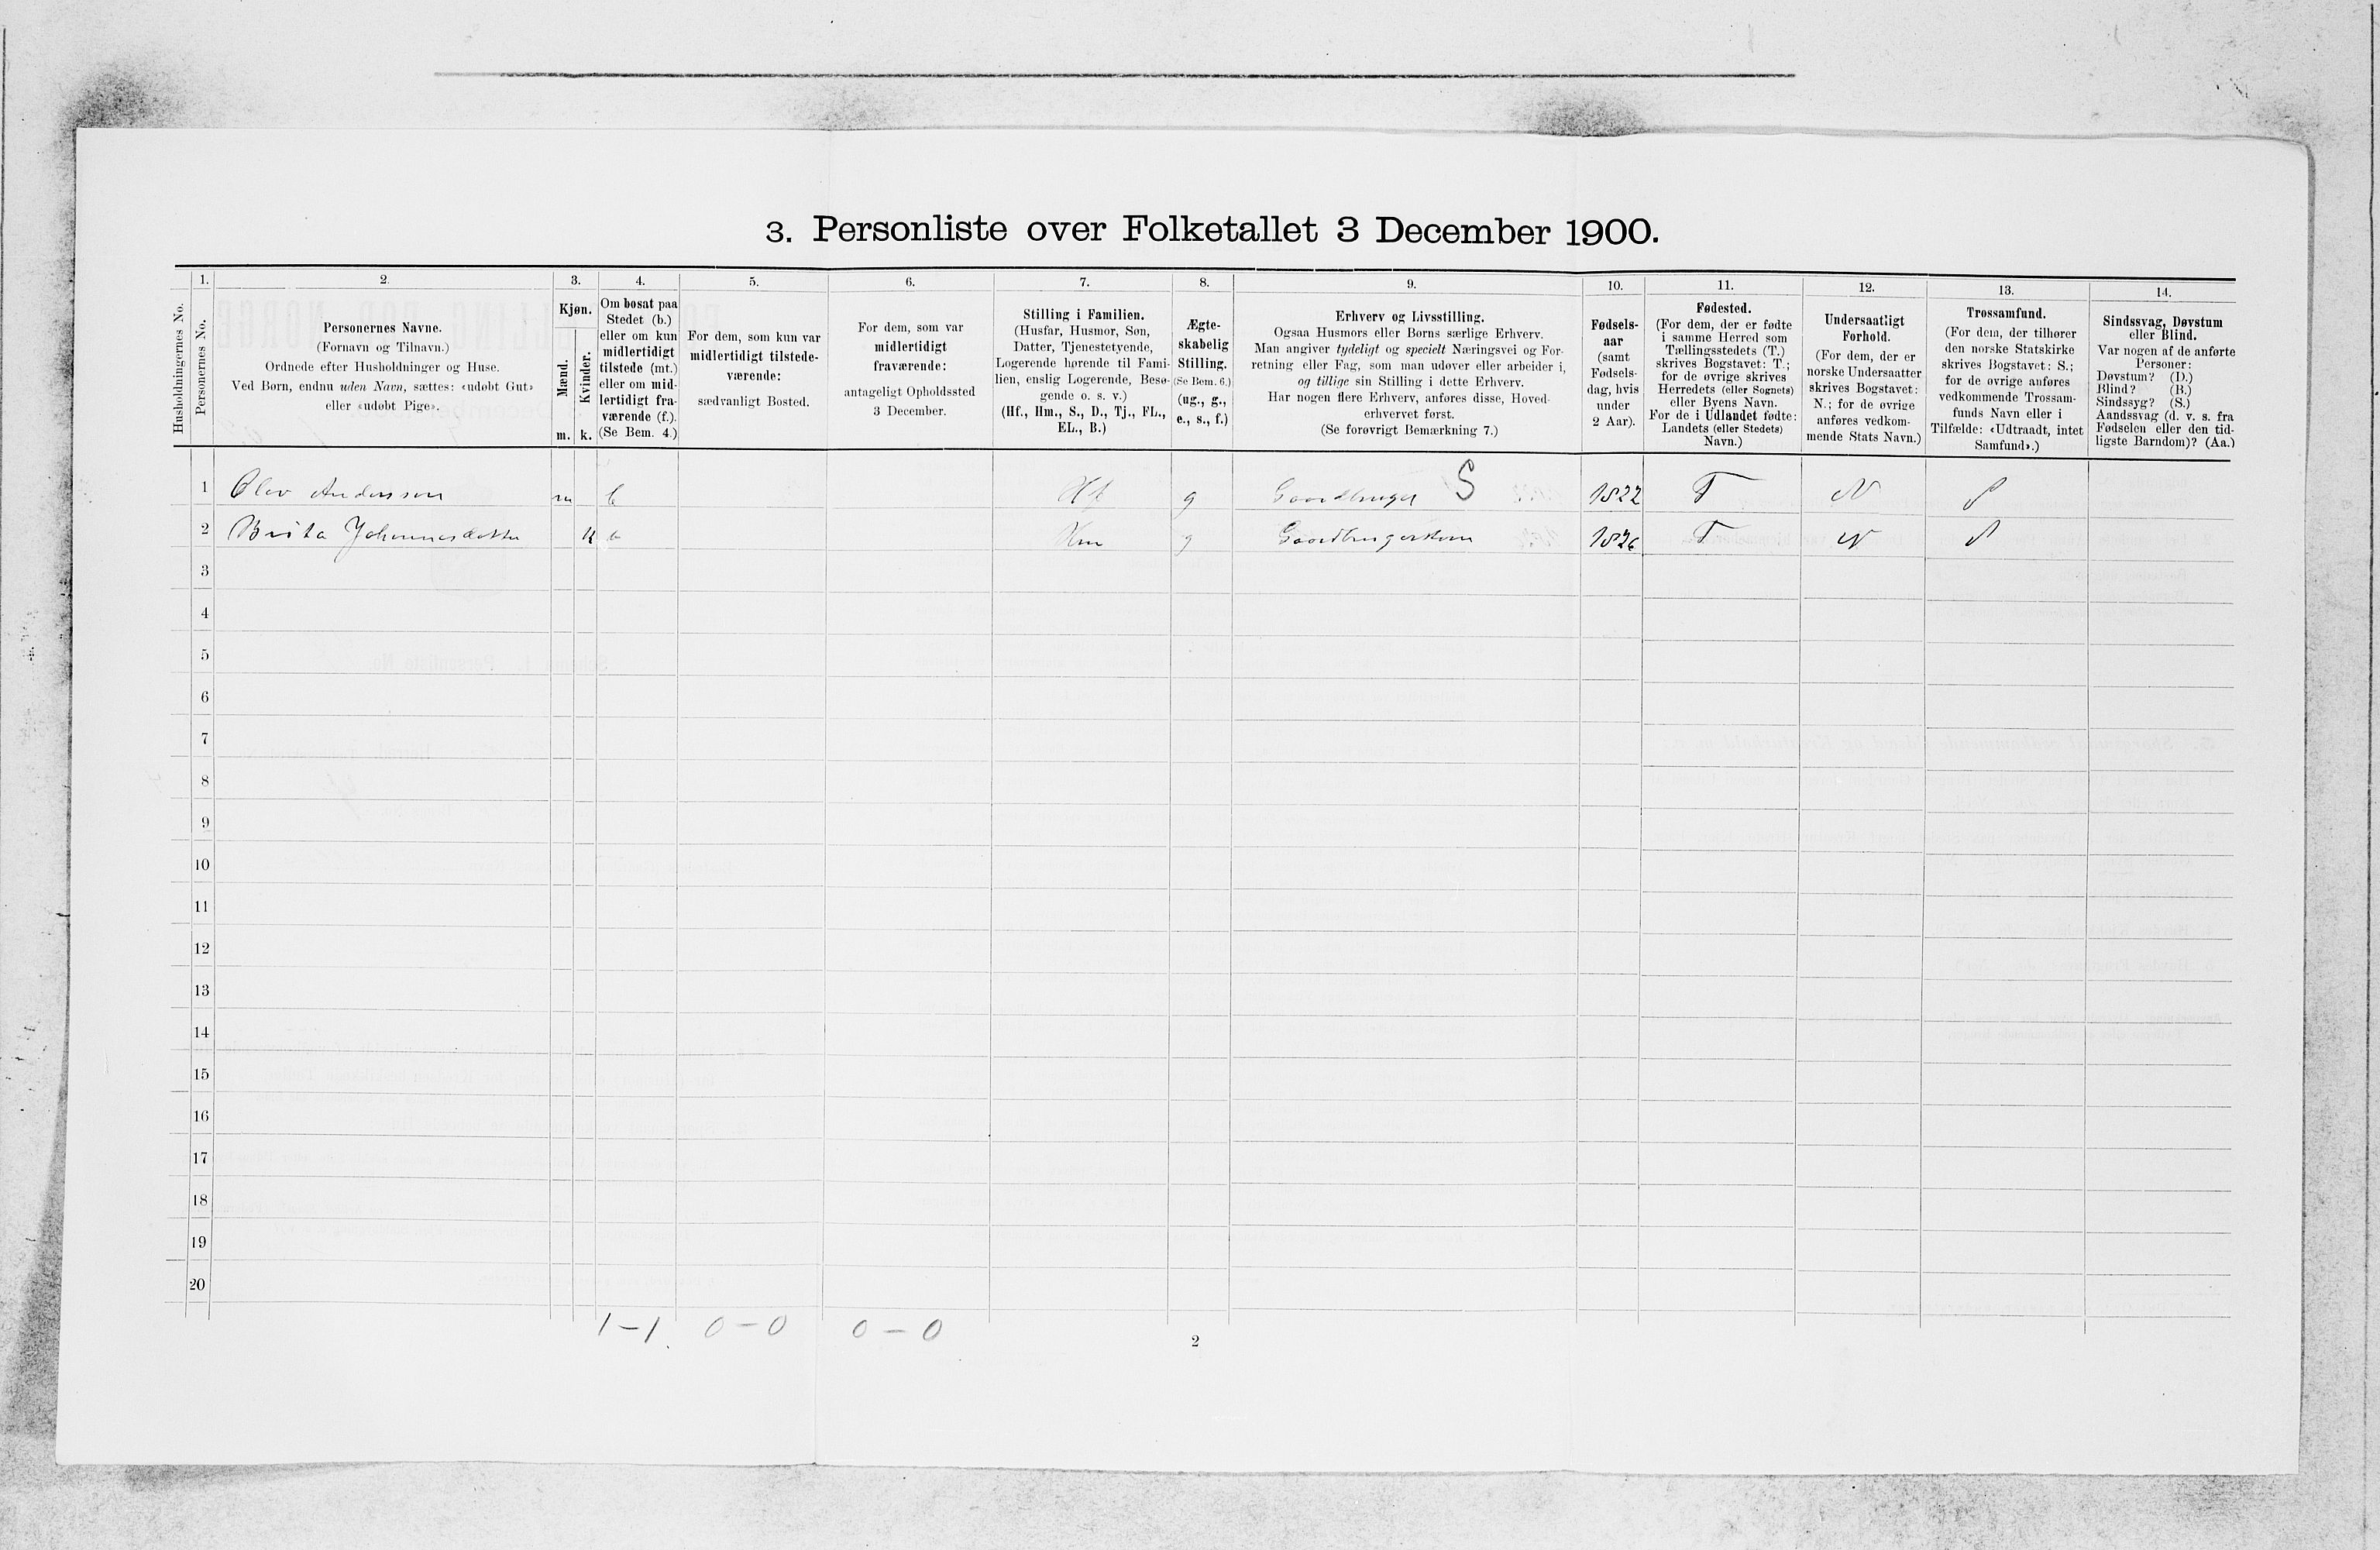 3. Personliste over Folketallet 3 December 1900.
Husholdningernes No.
1.
Personernes No.
2.
Personernes Navne.
(Fornavn og Tilnavn.)
Ordnede efter Husholdninger og Huse.
Ved Børn, endnu uden Navn, sættes: «udøbt Gut»
eller «udøbt Pige».
3.
Kjøn.
Mænd.
Kvinder.
m. k.
4.
Om bosat paa
Stedet (b.)
eller om kun
midlertidigt
tilstede (mt.)
eller om mid-
lertidigt fra-
værende (f.).
(Se Bem. 4.)
5.
For dem, som kun var
midlertidigt tilstede-
værende:
sædvanligt Bosted.
6.
For dem, som var
midlertidigt
fraværende:
antageligt Opholdssted
3 December.
7.
Stilling i Familien.
(Husfar, Husmor, Søn,
Datter, Tjenestetyende,
Logerende hørende til Fami-
lien, enslig Logerende, Besø-
gende o. s. v.)
(Hf., Hm., S., D., Tj., FL.,
EL., B.)
8.
Ægte-
skabelig
Stilling.
(Se Bem. 6.)
(ug., g.,
e., s., f.)
9.
Erhverv og Livsstilling.
Ogsaa Husmors eller Børns særlige Erhverv.
Man angiver tydeligt og specielt Næringsvei og For-
retning eller Fag, som man udøver eller arbeider i,
og tillige sin Stilling i dette Erhverv.
Har nogen flere Erhverv, anføres disse, Hoved-
erhvervet først.
(Se forøvrigt Bemærkning 7.)
10.
Fødsels-
aar
(samt
Fødsels-
dag, hvis
under
2 Aar).
11.
Fødested.
(For dem, der er fødte
i samme Herred som
Tællingsstedets (T.)
skrives Bogstavet: T.;
for de øvrige skrives
Herredets (eller Sognets)
eller Byens Navn.
For de i Udlandet fødte:
Landets (eller Stedets)
Navn.)
12.
Undersaatligt
Forhold.
(For dem, der er
norske Undersaatter
skrives Bogstavet:
N.; for de øvrige
anføres vedkom-
mende Stats Navn.)
13.
Trossamfund.
(For dem, der tilhører
den norske Statskirke
skrives Bogstavet: S.;
for de øvrige anføres
vedkommende Trossam-
funds Navn eller i
Tilfælde: «Udtraadt, intet
Samfund».)
14.
Sindssvag, Døvstum
eller Blind.
Var nogen af de anførte
Personer:
Døvstum? (D.)
Blind? (B.)
Sindssyg? (S.)
Aandssvag (d. v. s. fra
Fødselen eller den tid-
ligste Barndom)? (Aa.)
1 Olav Anderssen m b Hf g Gaardbruger S 1822 T N S
2 Brita Johannesdatter k b Hm g Gaardbrugerkone 1826 T N S
3
4
5
6
7
8
9
10
11
12
13
14
15
16
17
18
19
20
1-1. 0-0 0-0
2